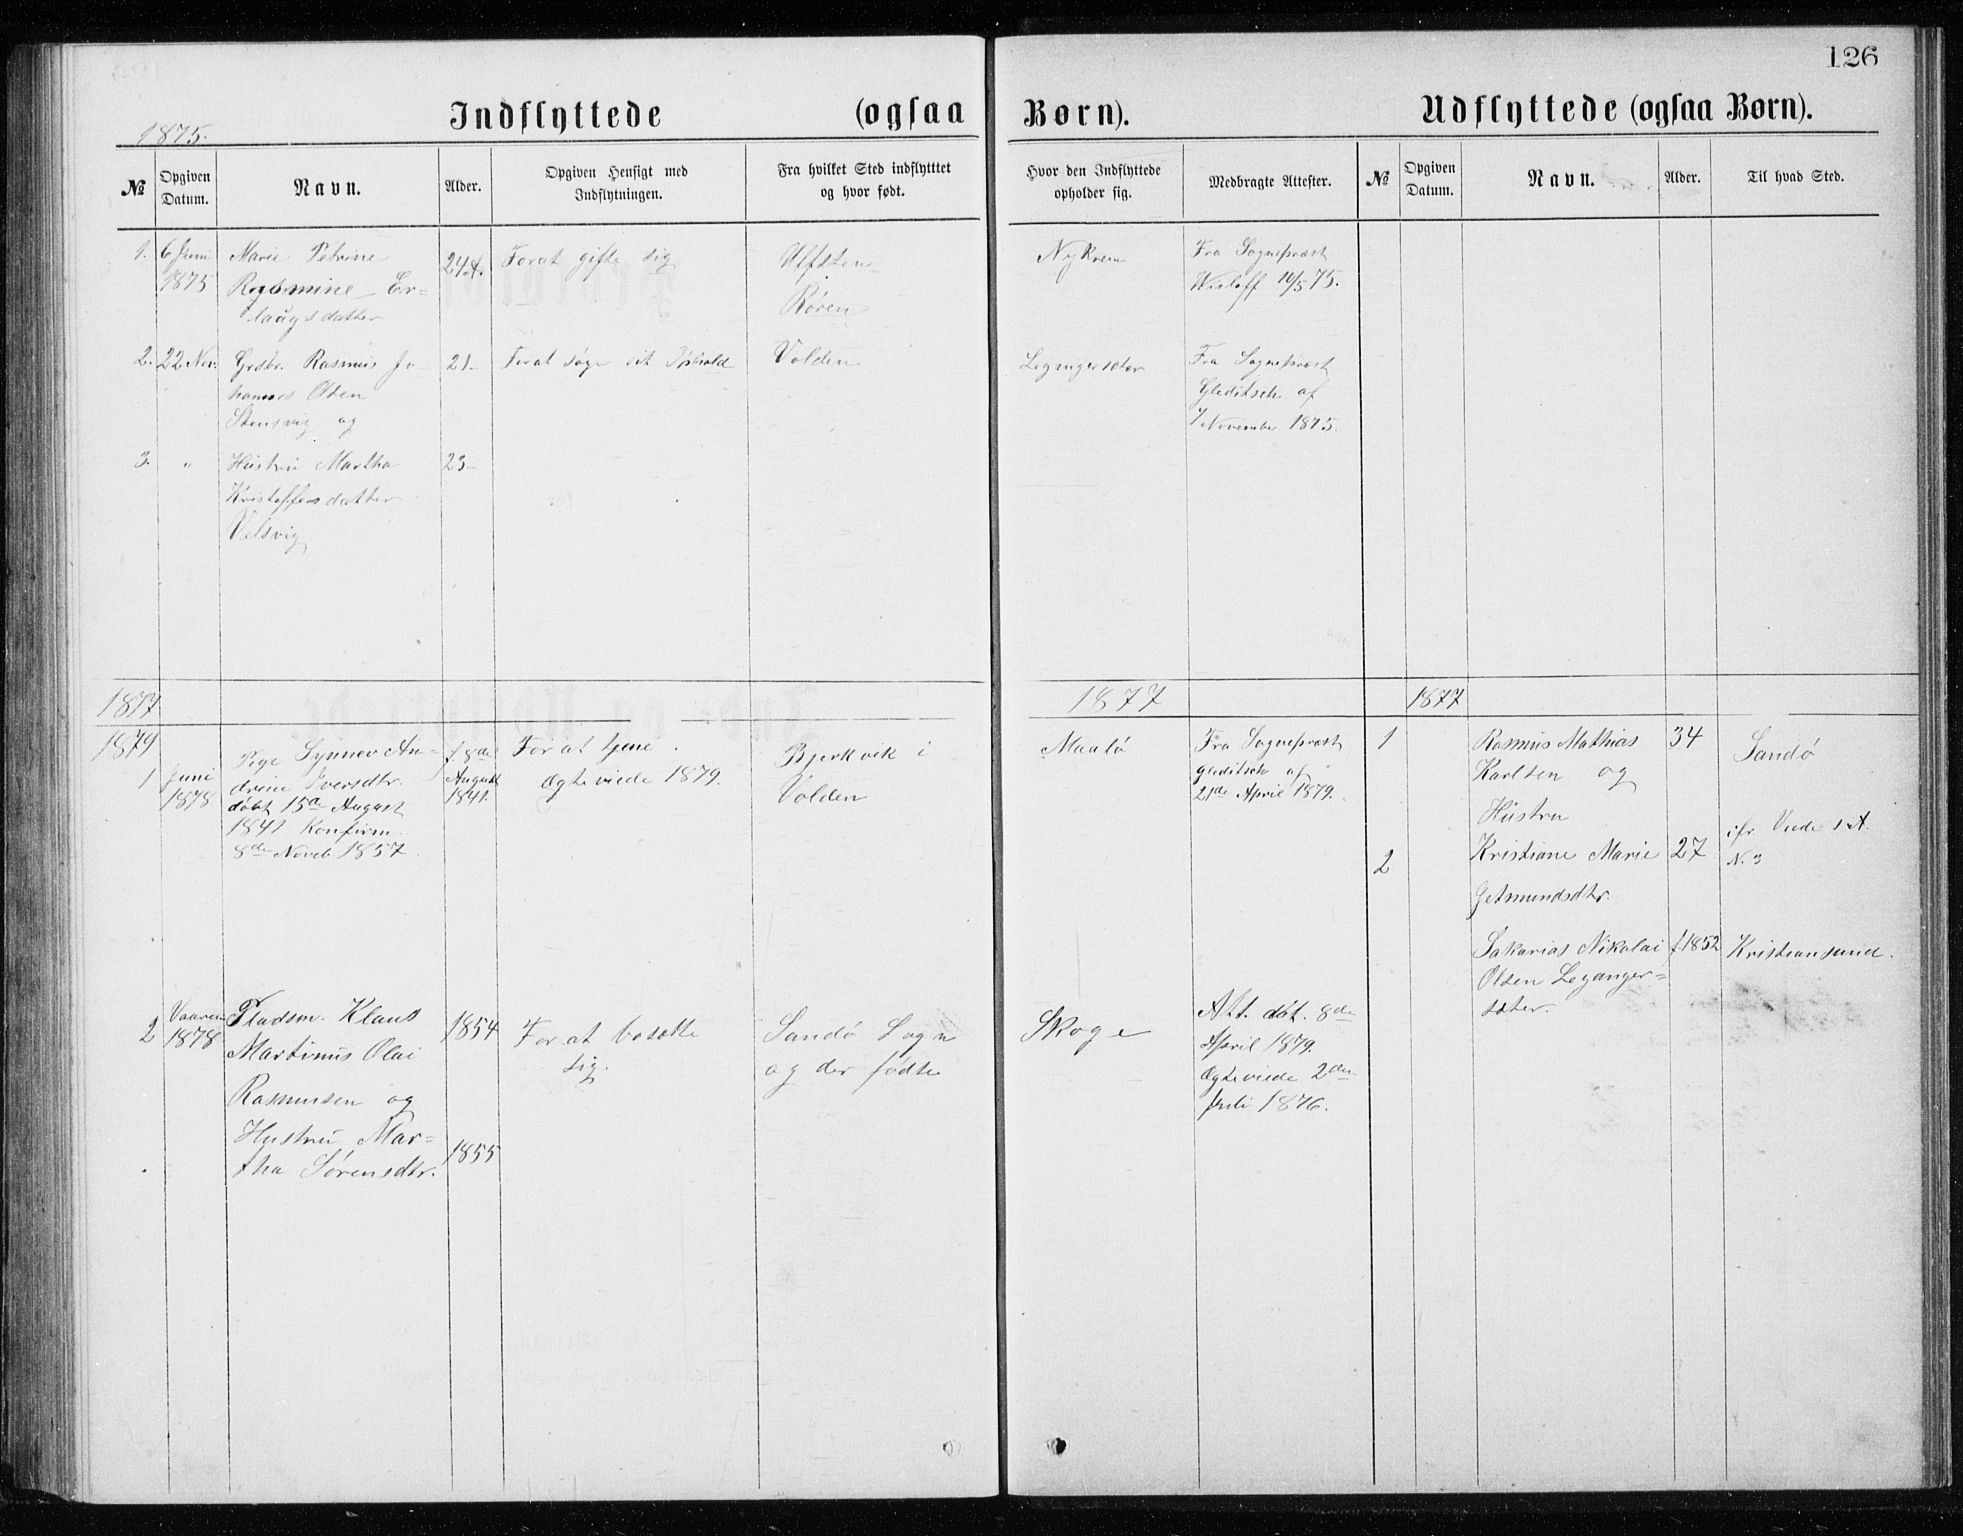 126
Indflyttede (ogsaa Børn).
Udflyttede (ogsaa Børn).
1875.
№
Opgiven Datum.
Navn.
Alder.
Opgiven Hensigt med
Indflytningen.
Fra hvilket Sted indflytttet
og hvor født.
Hvor den Indflyttede
opholder sig.
Medbragte Attester.
№
Opgiven Datum.
Navn.
Alder.
Til hvad Sted.
1. 6 Juni Marie Petrine 24 A. For at gifte sig Ulfsten Nykrem Fra Sognepræst
1875 Er= Røren 10/5 75.
laugsdatter
2. 22 Nov. Grdbr. Rasmus Jo= 21 For at søge sit Ophold Volden Fra Sognepræst
hannes Olsen Gleditsch af
Stensvig og November 1875.
3. " Hustru Martha 23
Kristoffersdatter
Velsvig
1877 1877 1877
1879
1 Juni 1878 Pige Synnev An= f. 8de For at tjene. Bjerkvik i Maalö Fra Sognepræst
drine Iversdtr. August Ægteviede 1879. Volden Gleditsch af
döbt 15de August 1841. 21de April 1879.
1841 Konfirm.
8de Noveb. 1857
1 Rasmus Mathias 34 Sandö
Karlsen og
Hustru
2 Kristiane Marie 27 ifr. Viede 1 A.
N. 3
Getmundsdtr.
Sakarias Nikolai f. 1852 Kristiansund.
Olsen Leganger=
sæter.
2 Vaaren 1878 Pladsm. Klaus 1854 For at bosætte Sandö Sogn Skoge Att. dat. 8de
Martinus Olai sig. og der födte April 1879.
Rasmussen og Ægteviede 2den
Hustru Mar= 1855 Juli 1876.
tha Sörensdtr.